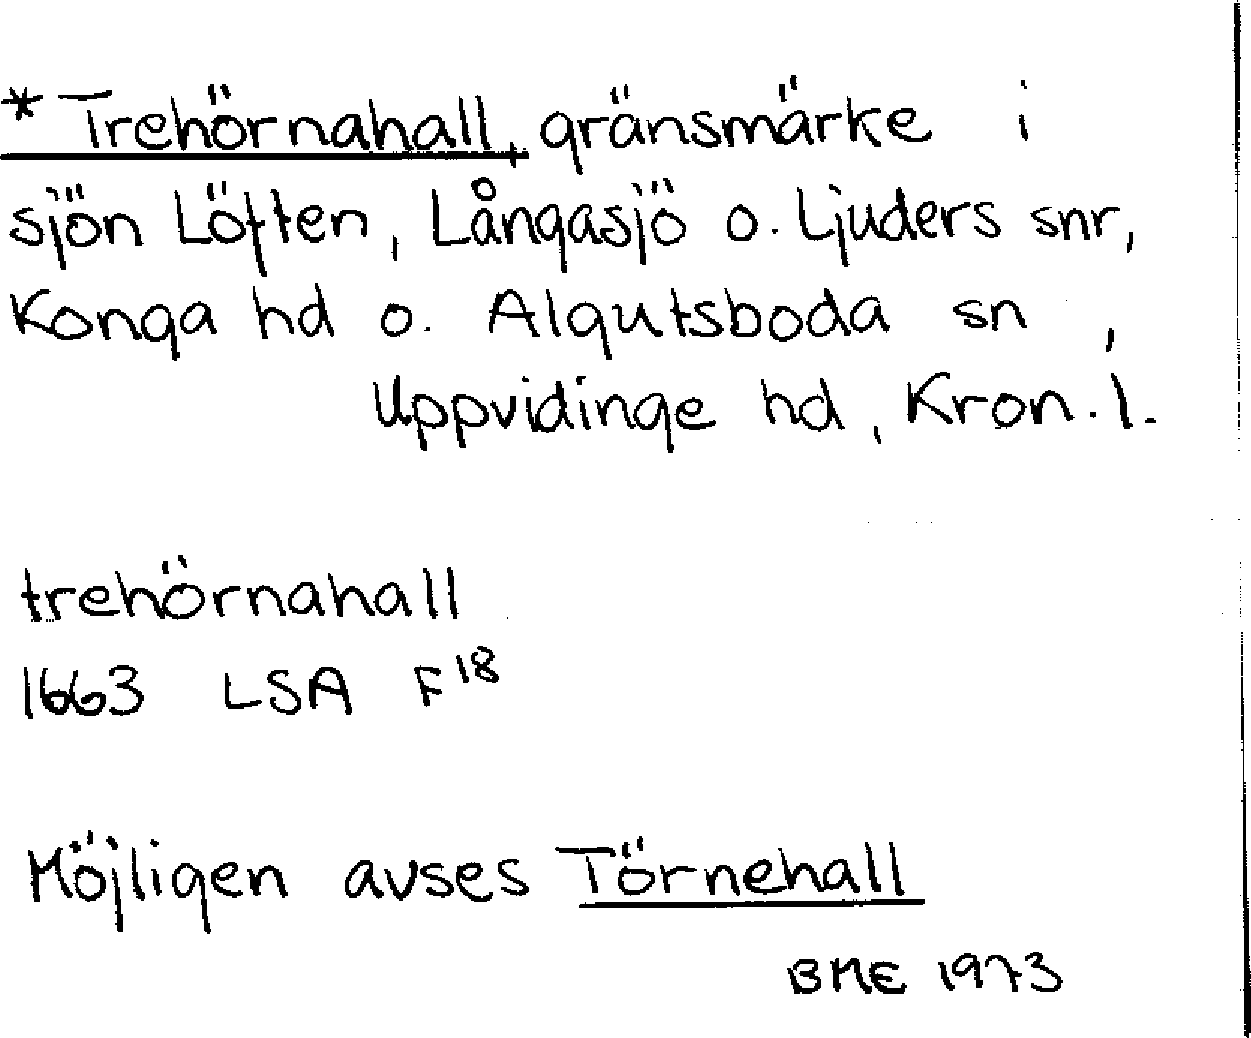 * Trehörnahall, gränsmärke i
sjön Löften, Långasjö o. Ljuders snr,
Konga hd o. Algutsboda sn,
Uppvidinge hd, Kron. l.
trehörnahall
1663 LSA F18
Möjligen avses Törnehall
BME 1973